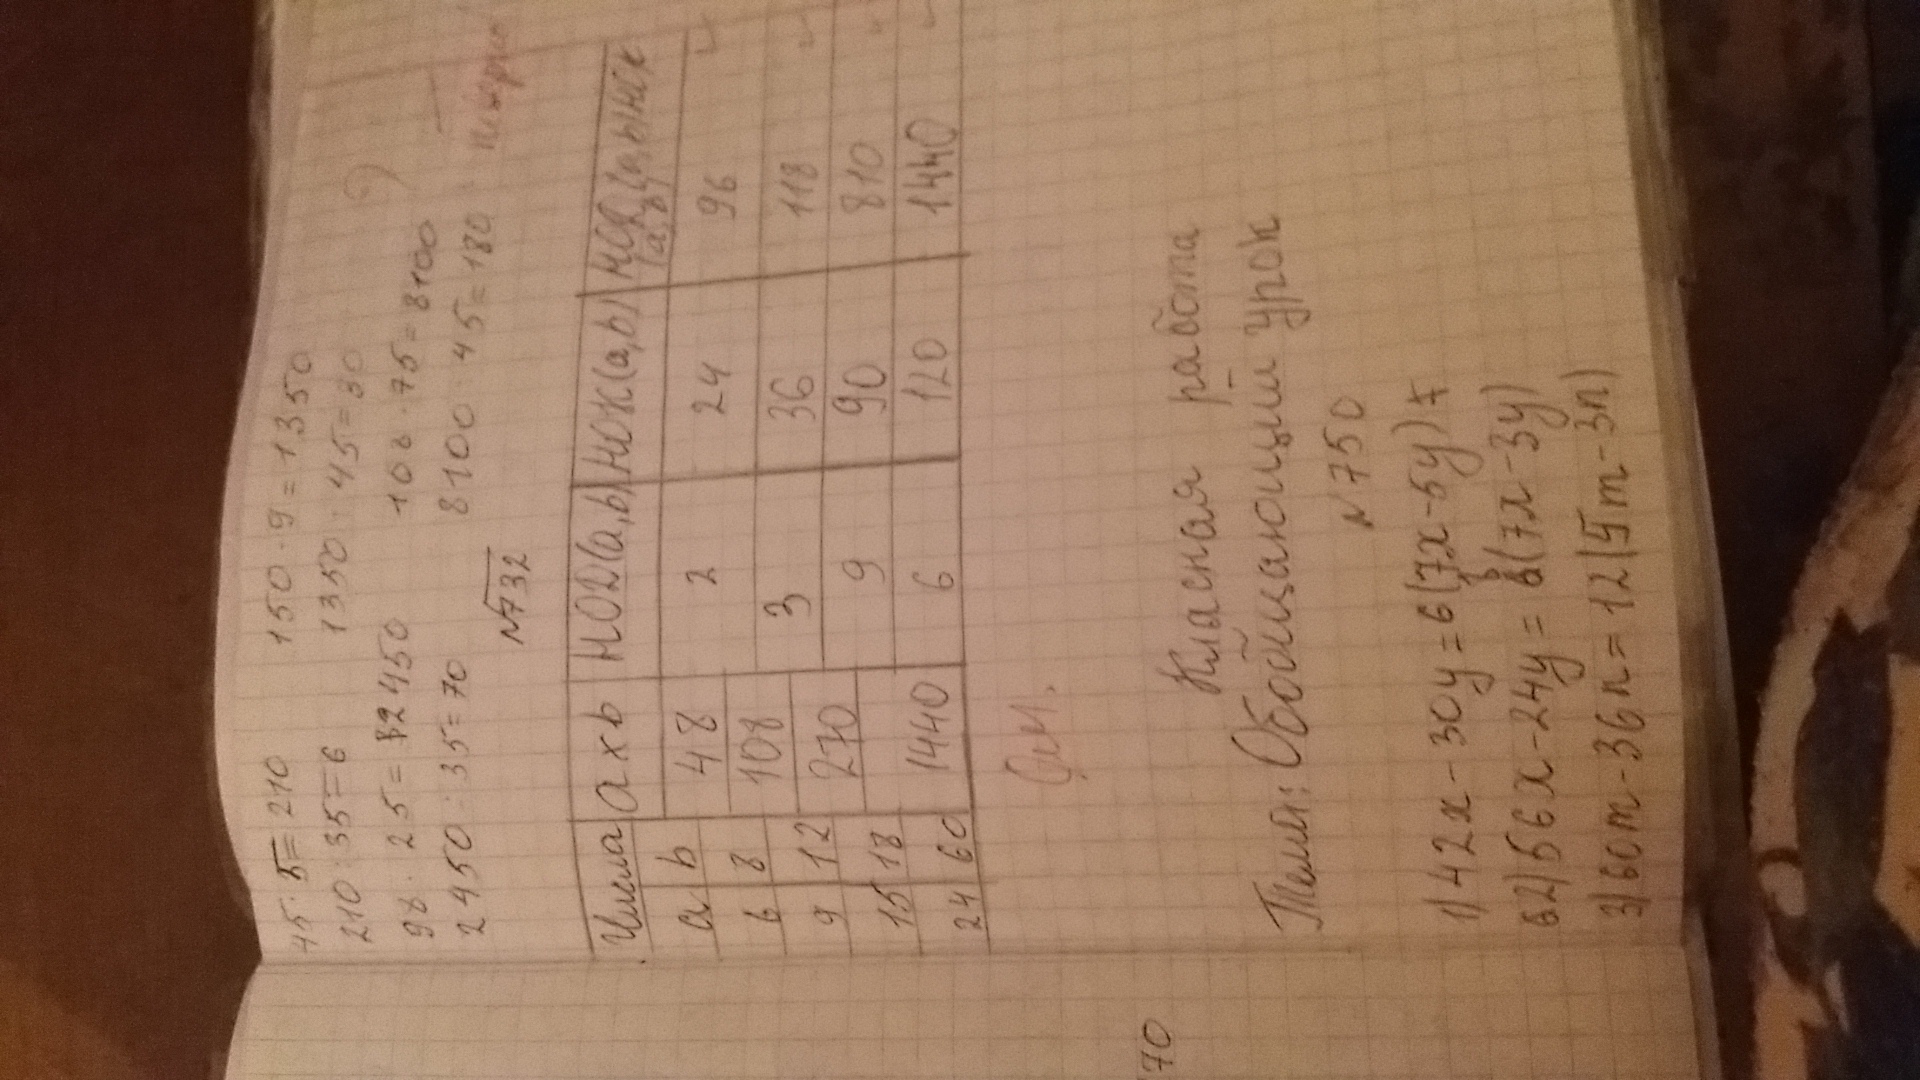 45 · 5 = 210 150 · 9 = 1350
210 : 35 = 6 1350 : 45 = 30
98 · 25 = 2450 108 · 75 = 8100
2450 : 35 = 70 8100 : 45 = 180
№732
Числа a x b НОД(a,b) НОК(a,b) НОД(a,b)·НОК
(a,b)
a b 48 2 24 96
6 8 108 3 36 118
9 12 270 9 90 810
15 18
24 60 1440 6 120 1440
Класная работа
Тема: Обобщающий урок
№750
1) 42x - 30y = 6(7x - 5y)
2) 56x - 24y = 8(7x - 3y)
3) 60m - 36n = 12(5m - 3n)
70